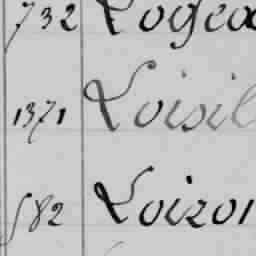 732 Logea
1371 Loisil
582 Loizon